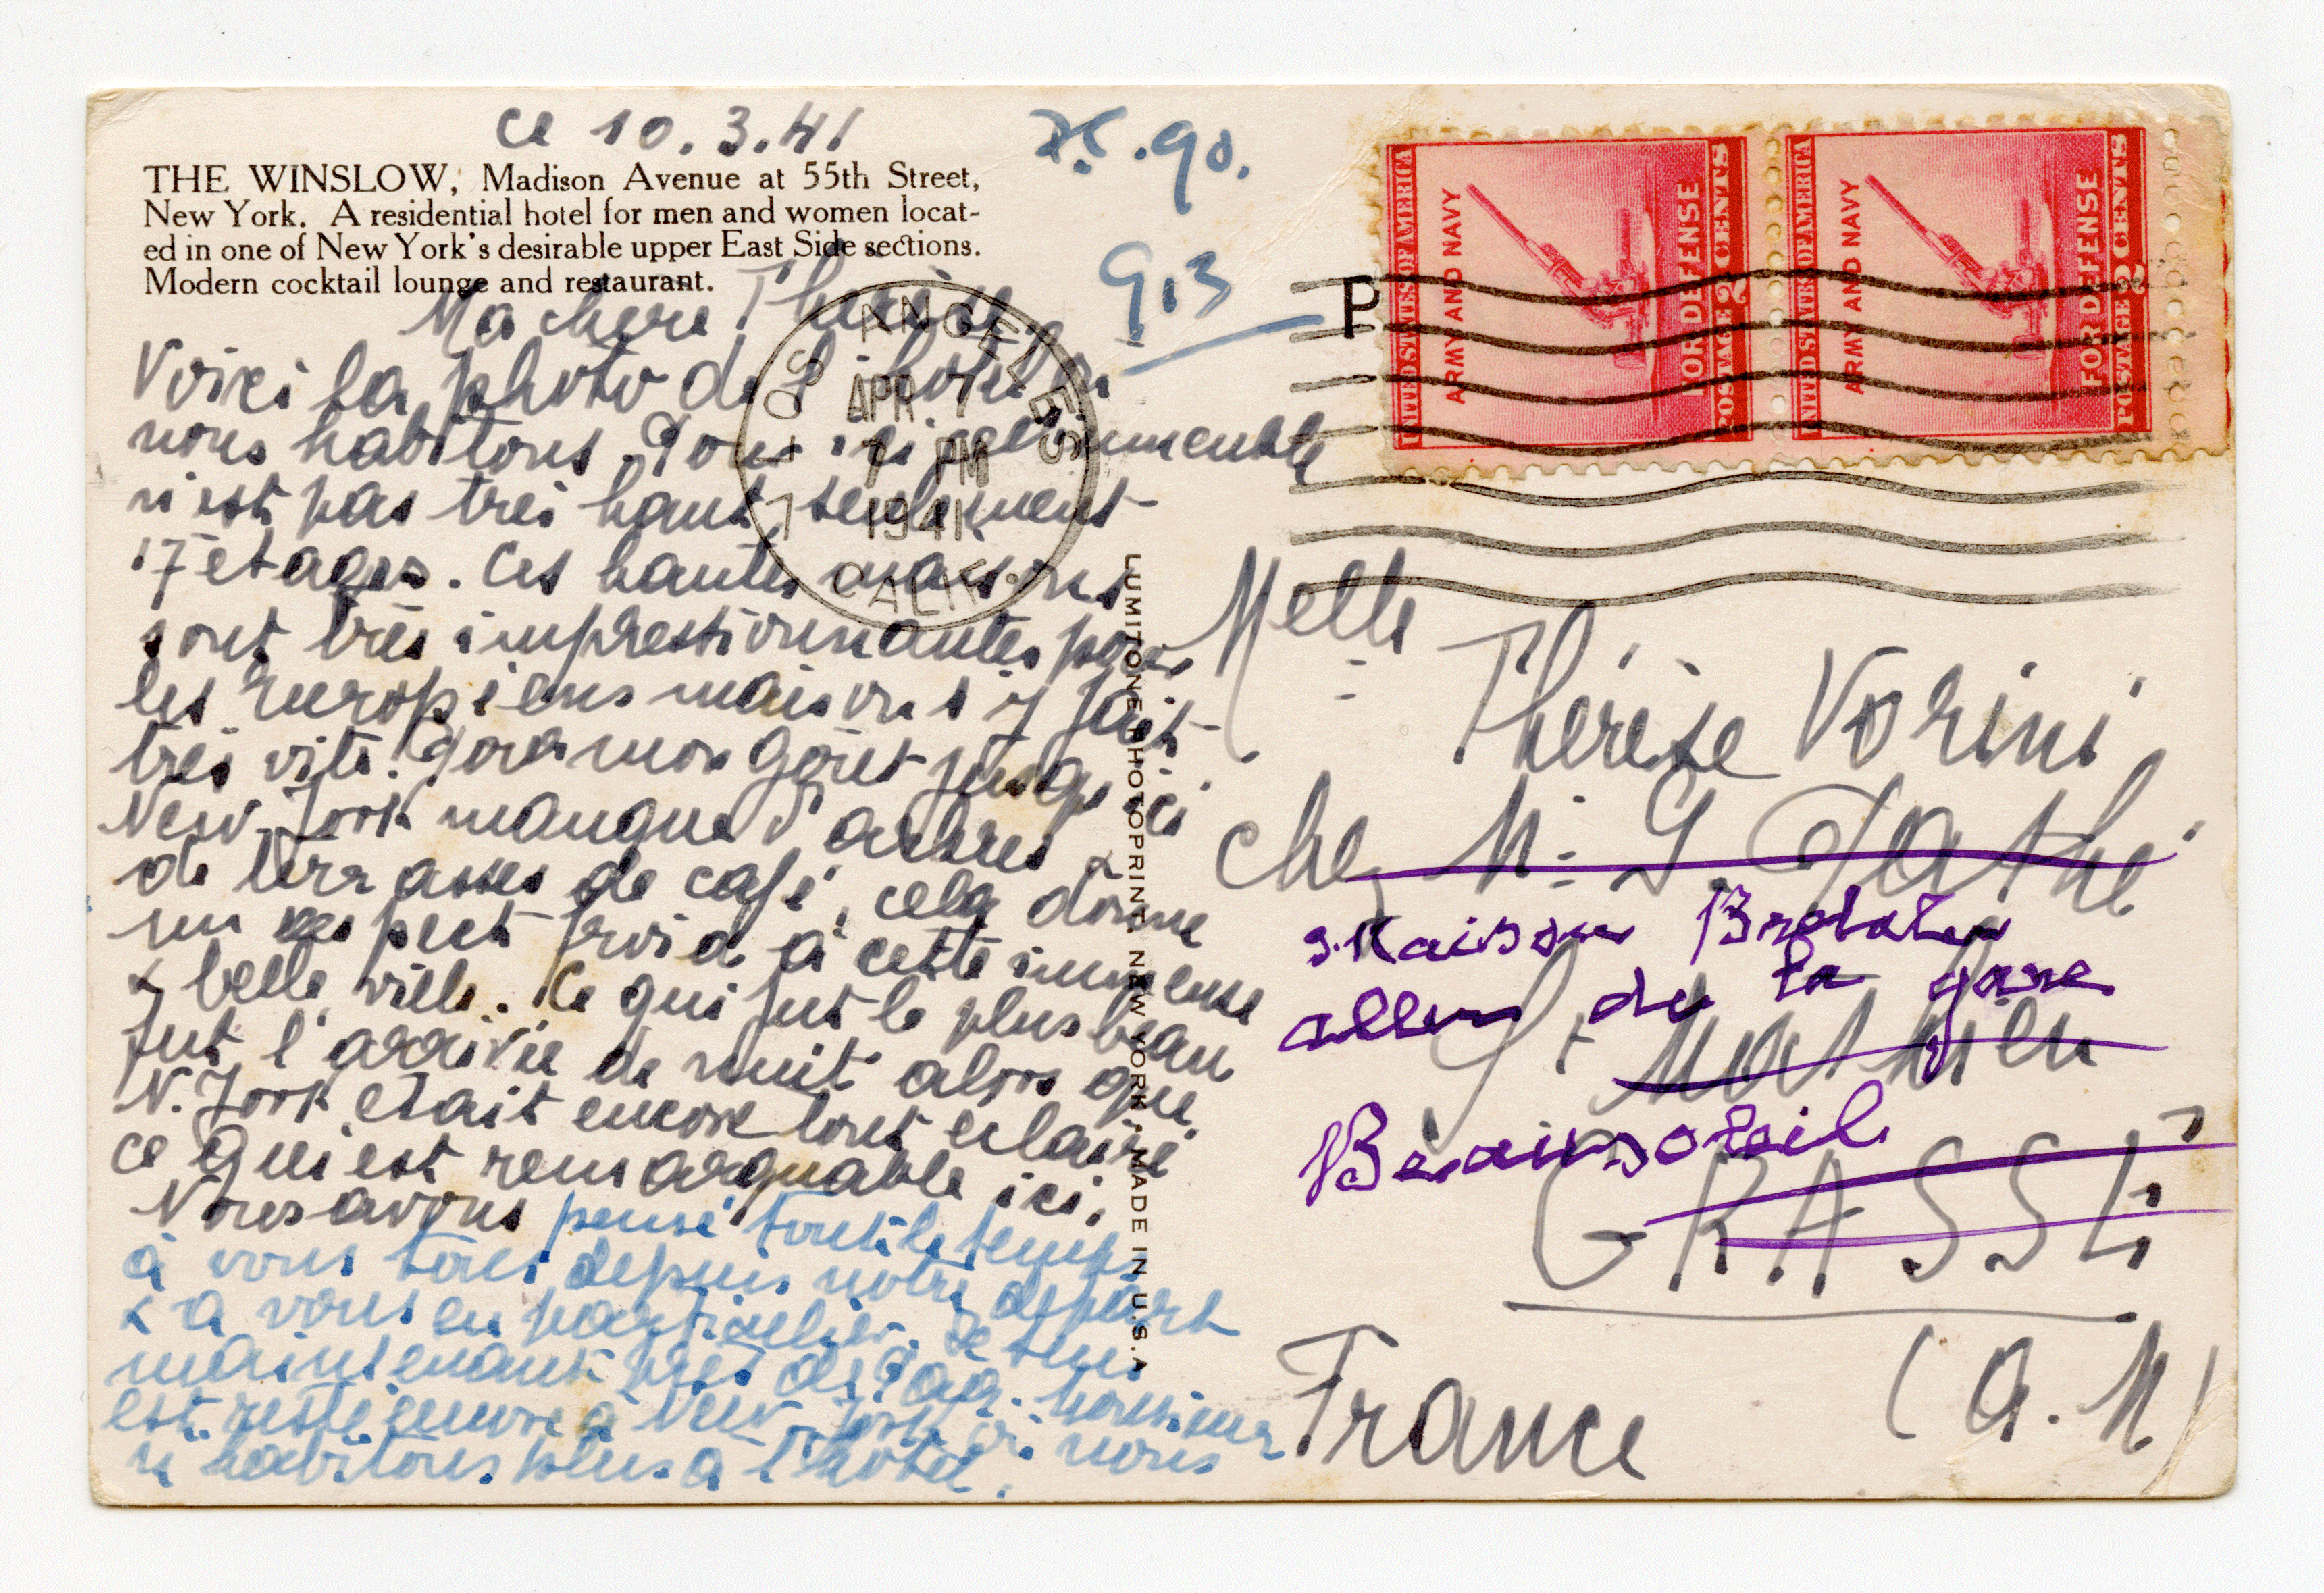 ce 10.3.41
THE WINSLOW, Madison Avenue at 55th Street,
New York. A residential hotel for men and women locat-
ed in one of New York's desirable upper East Side sections.
Modern cocktail lounge and restaurant.
Ma chere Therese
Voici la photo de l'hotel ou
nous habitons. Pour ici cet immeuble
n'est pas très haut, seulement
17 etages. Ces hautes maisons
sont très impressionnantes pour
les Européens mais on s'y fait
très vite. Pour mon goût jusqu'ici
New-York manque d'arbres &
de terrasses de café, cela donne
un aspect froid à cette immense
& belle ville. Ce qui fut le plus beau
fut l'arrivée de nuit alors que
N. York etait encore tout eclairé
ce qui est remarquable ici.
Nous avons pensé tout le temps
à vous tous depuis notre depart
& a vous en particulier. Je suis
maintenant près de Monsieur
est resté encore à New-York où nous
n'habitons plus à l'hotel.
913
LOS ANGELES
APR 7
7 PM
1941
CALIF.
LUMITONE PHOTOPRINT, NEW YORK - MADE IN U.S.A
P
UNITED STATES OF AMERICA
ARMY AND NAVY
FOR DEFENSE
POSTAGE 2 CENTS
UNITED STATES OF AMERICA
ARMY AND NAVY
FOR DEFENSE
POSTAGE 2 CENTS
Melle
Thérèse Vorini
chez M. G.
Maison
de la gare
St Mathieu
Beausoleil
GRASSE
France (A.M)